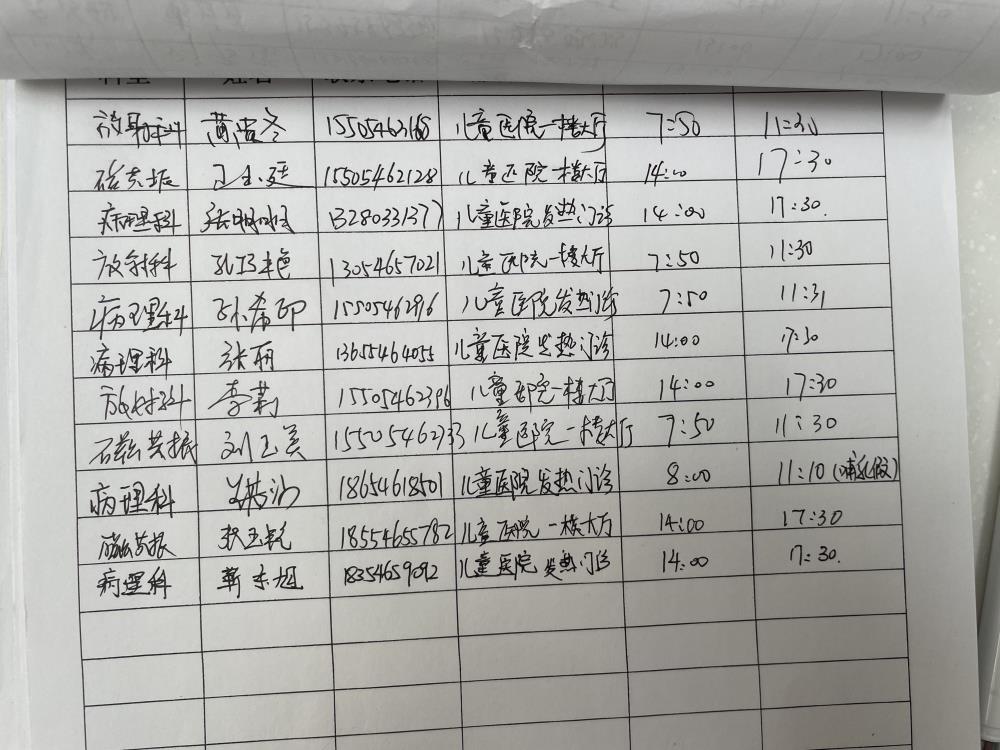 放射科 15505463168 儿童医院一楼大厅 7:50 11:30
磁共振 15505462128 儿童医院一楼大厅 14:00 17:30
病理科 张明明 13280331377 儿童医院发热门诊 14:00 17:30.
放射科 孔巧艳 13054657021 儿童医院一楼大厅 7:50 11:30
病理科 1550546296 儿童医院发热门诊 7:50 11:31
病理科 张丽 13655464055 儿童医院发热门诊 14:00 17:30
放射科 李莉 15505462396 儿童医院一楼大厅 14:00 17:30
磁共振 刘玉美 儿童医院一楼大厅 7:50 11:30
病理科 18654618501 儿童医院发热门诊 8:00 11:10(哺乳假)
磁共振 张玉锐 18554655782 儿童医院一楼大厅 14:00 17:30
病理科 靳东旭 18354659092 儿童医院发热门诊 14:00 17:30.